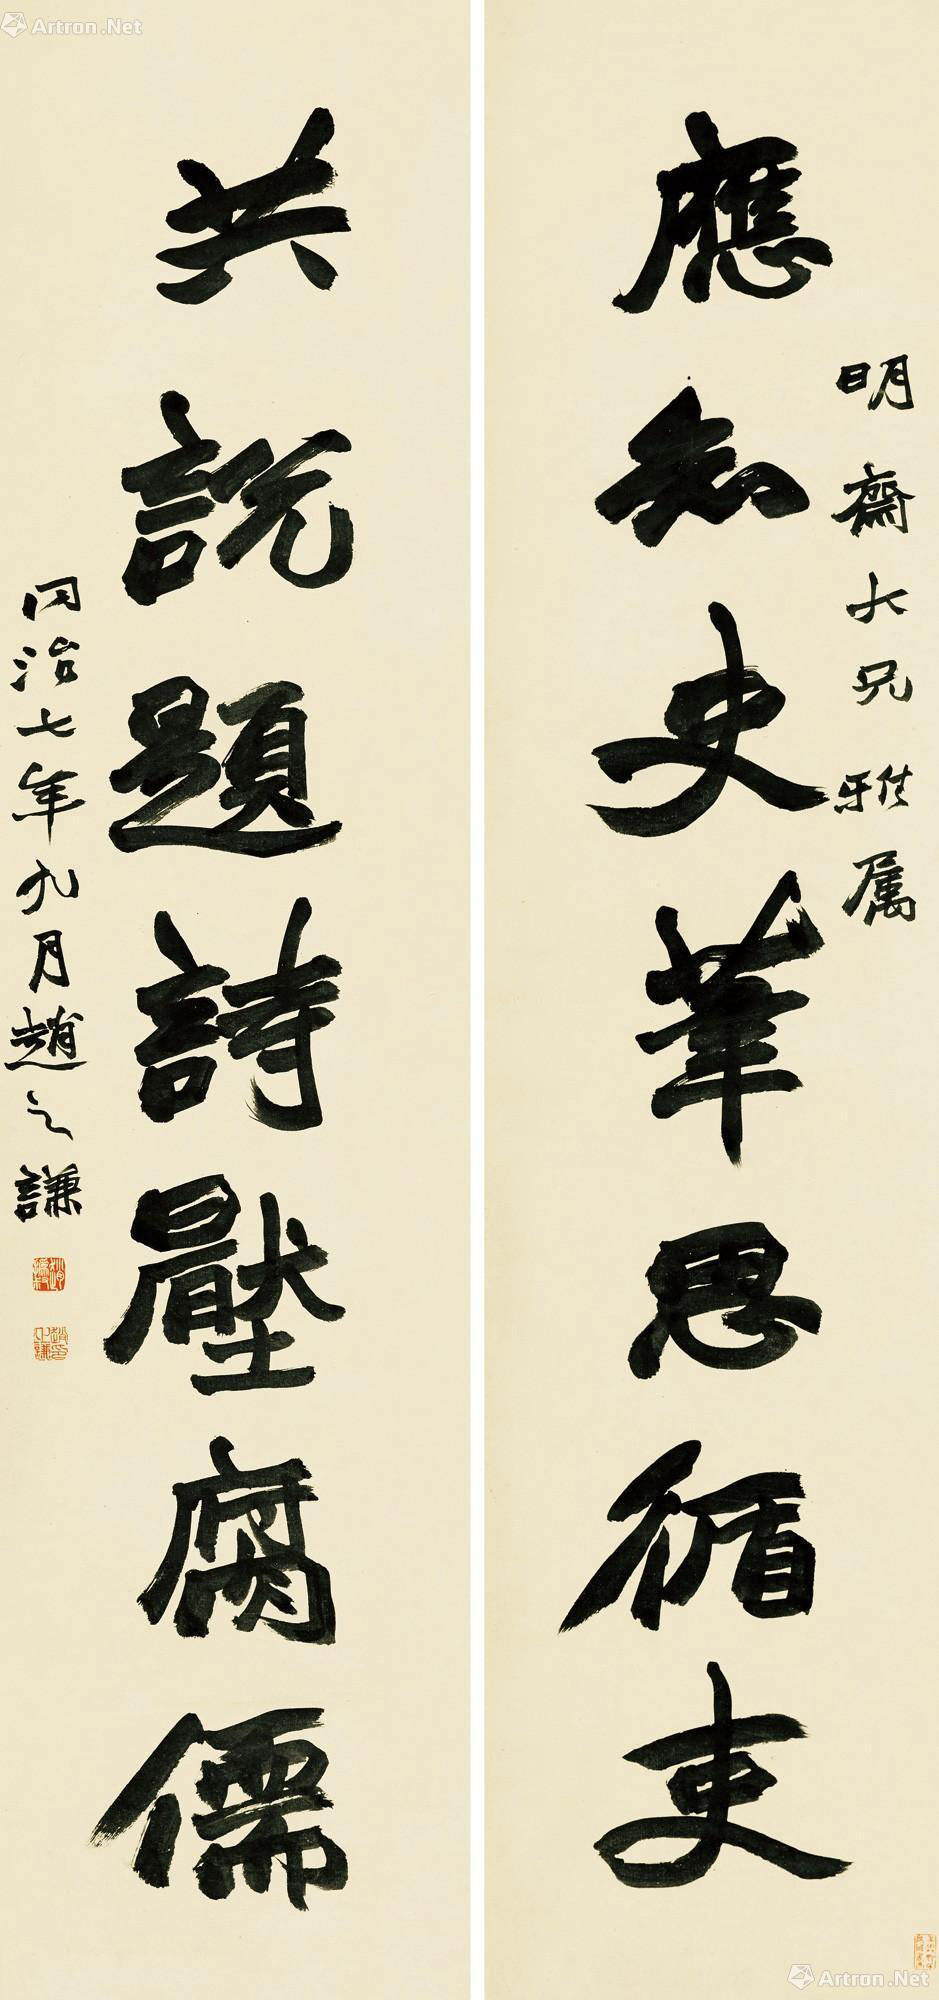 應知史筆思循吏
明齋大兄雅屬
共說題詩壓腐儒
同治七年九月趙之謙
Artron.Net
Artron.Net